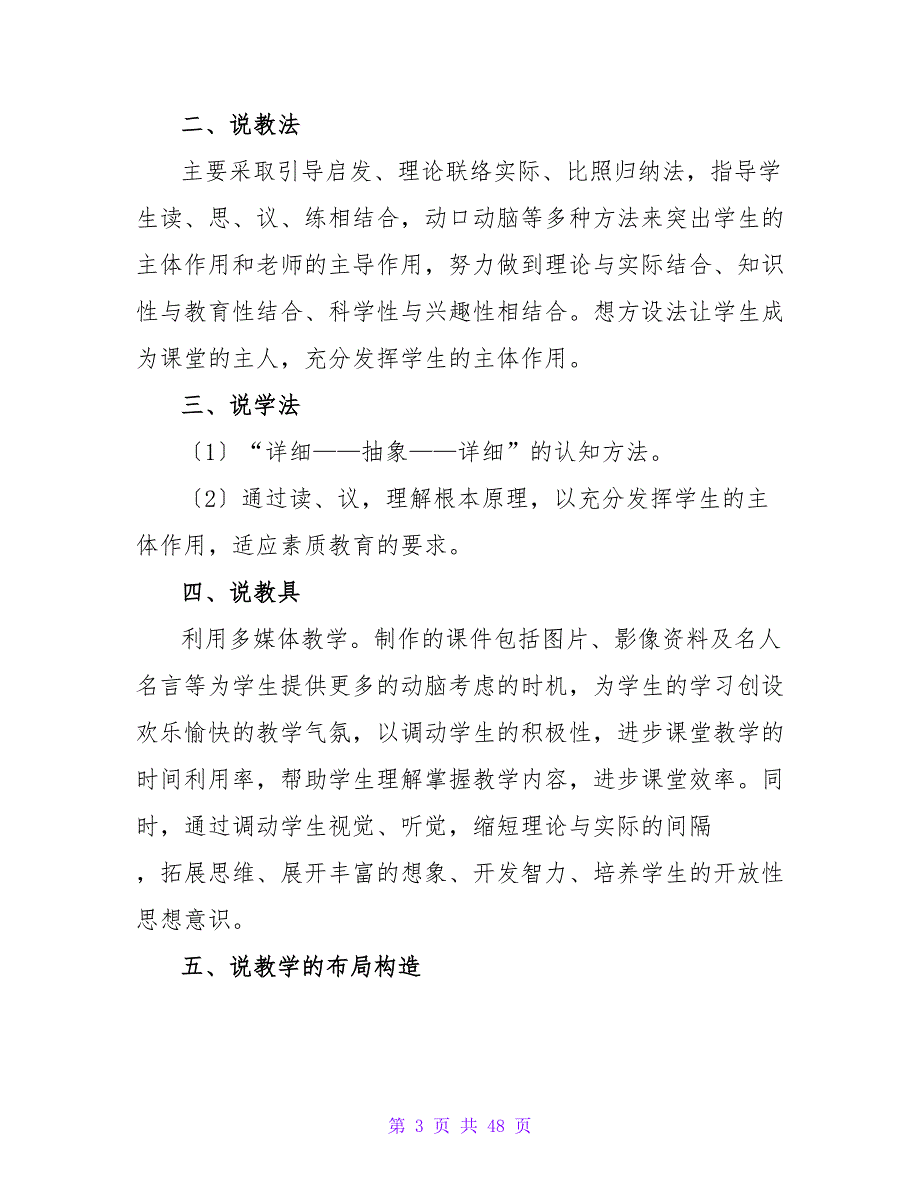 二、说教法
主要采取引导启发、理论联络实际、比照归纳法，指导学
生读、思、议、练相结合，动口动脑等多种方法来突出学生的
主体作用和老师的主导作用，努力做到理论与实际结合、知识
性与教育性结合、科学性与兴趣性相结合。想方设法让学生成
为课堂的主人，充分发挥学生的主体作用。
三、说学法
〔1〕“详细——抽象——详细”的认知方法。
〔2〕通过读、议，理解根本原理，以充分发挥学生的主
体作用，适应素质教育的要求。
四、说教具
利用多媒体教学。制作的课件包括图片、影像资料及名人
名言等为学生提供更多的动脑考虑的时机，为学生的学习创设
欢乐愉快的教学气氛，以调动学生的积极性，进步课堂教学的
时间利用率，帮助学生理解掌握教学内容，进步课堂效率。同
时，通过调动学生视觉、听觉，缩短理论与实际的间隔
，拓展思维、展开丰富的想象、开发智力、培养学生的开放性
思想意识。
五、说教学的布局构造
第 3 页 共 48 页